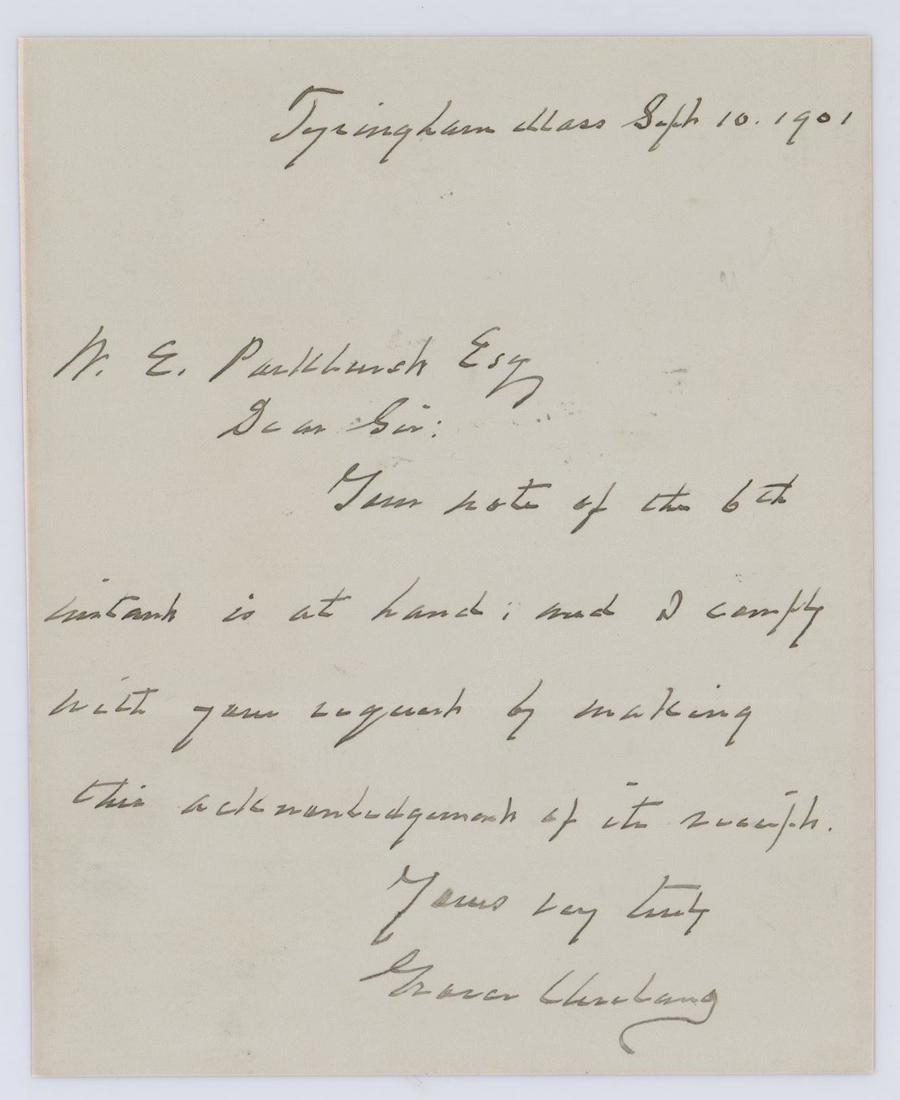 Tyringham Mass Sept 10. 1901
W. E. Parkhurst Esq
Dear Sir:
Your note of the 6th
instant is at hand; and I comply
with your request by making
this acknowledgement of its receipt.
Yours very truly
Grover Cleveland